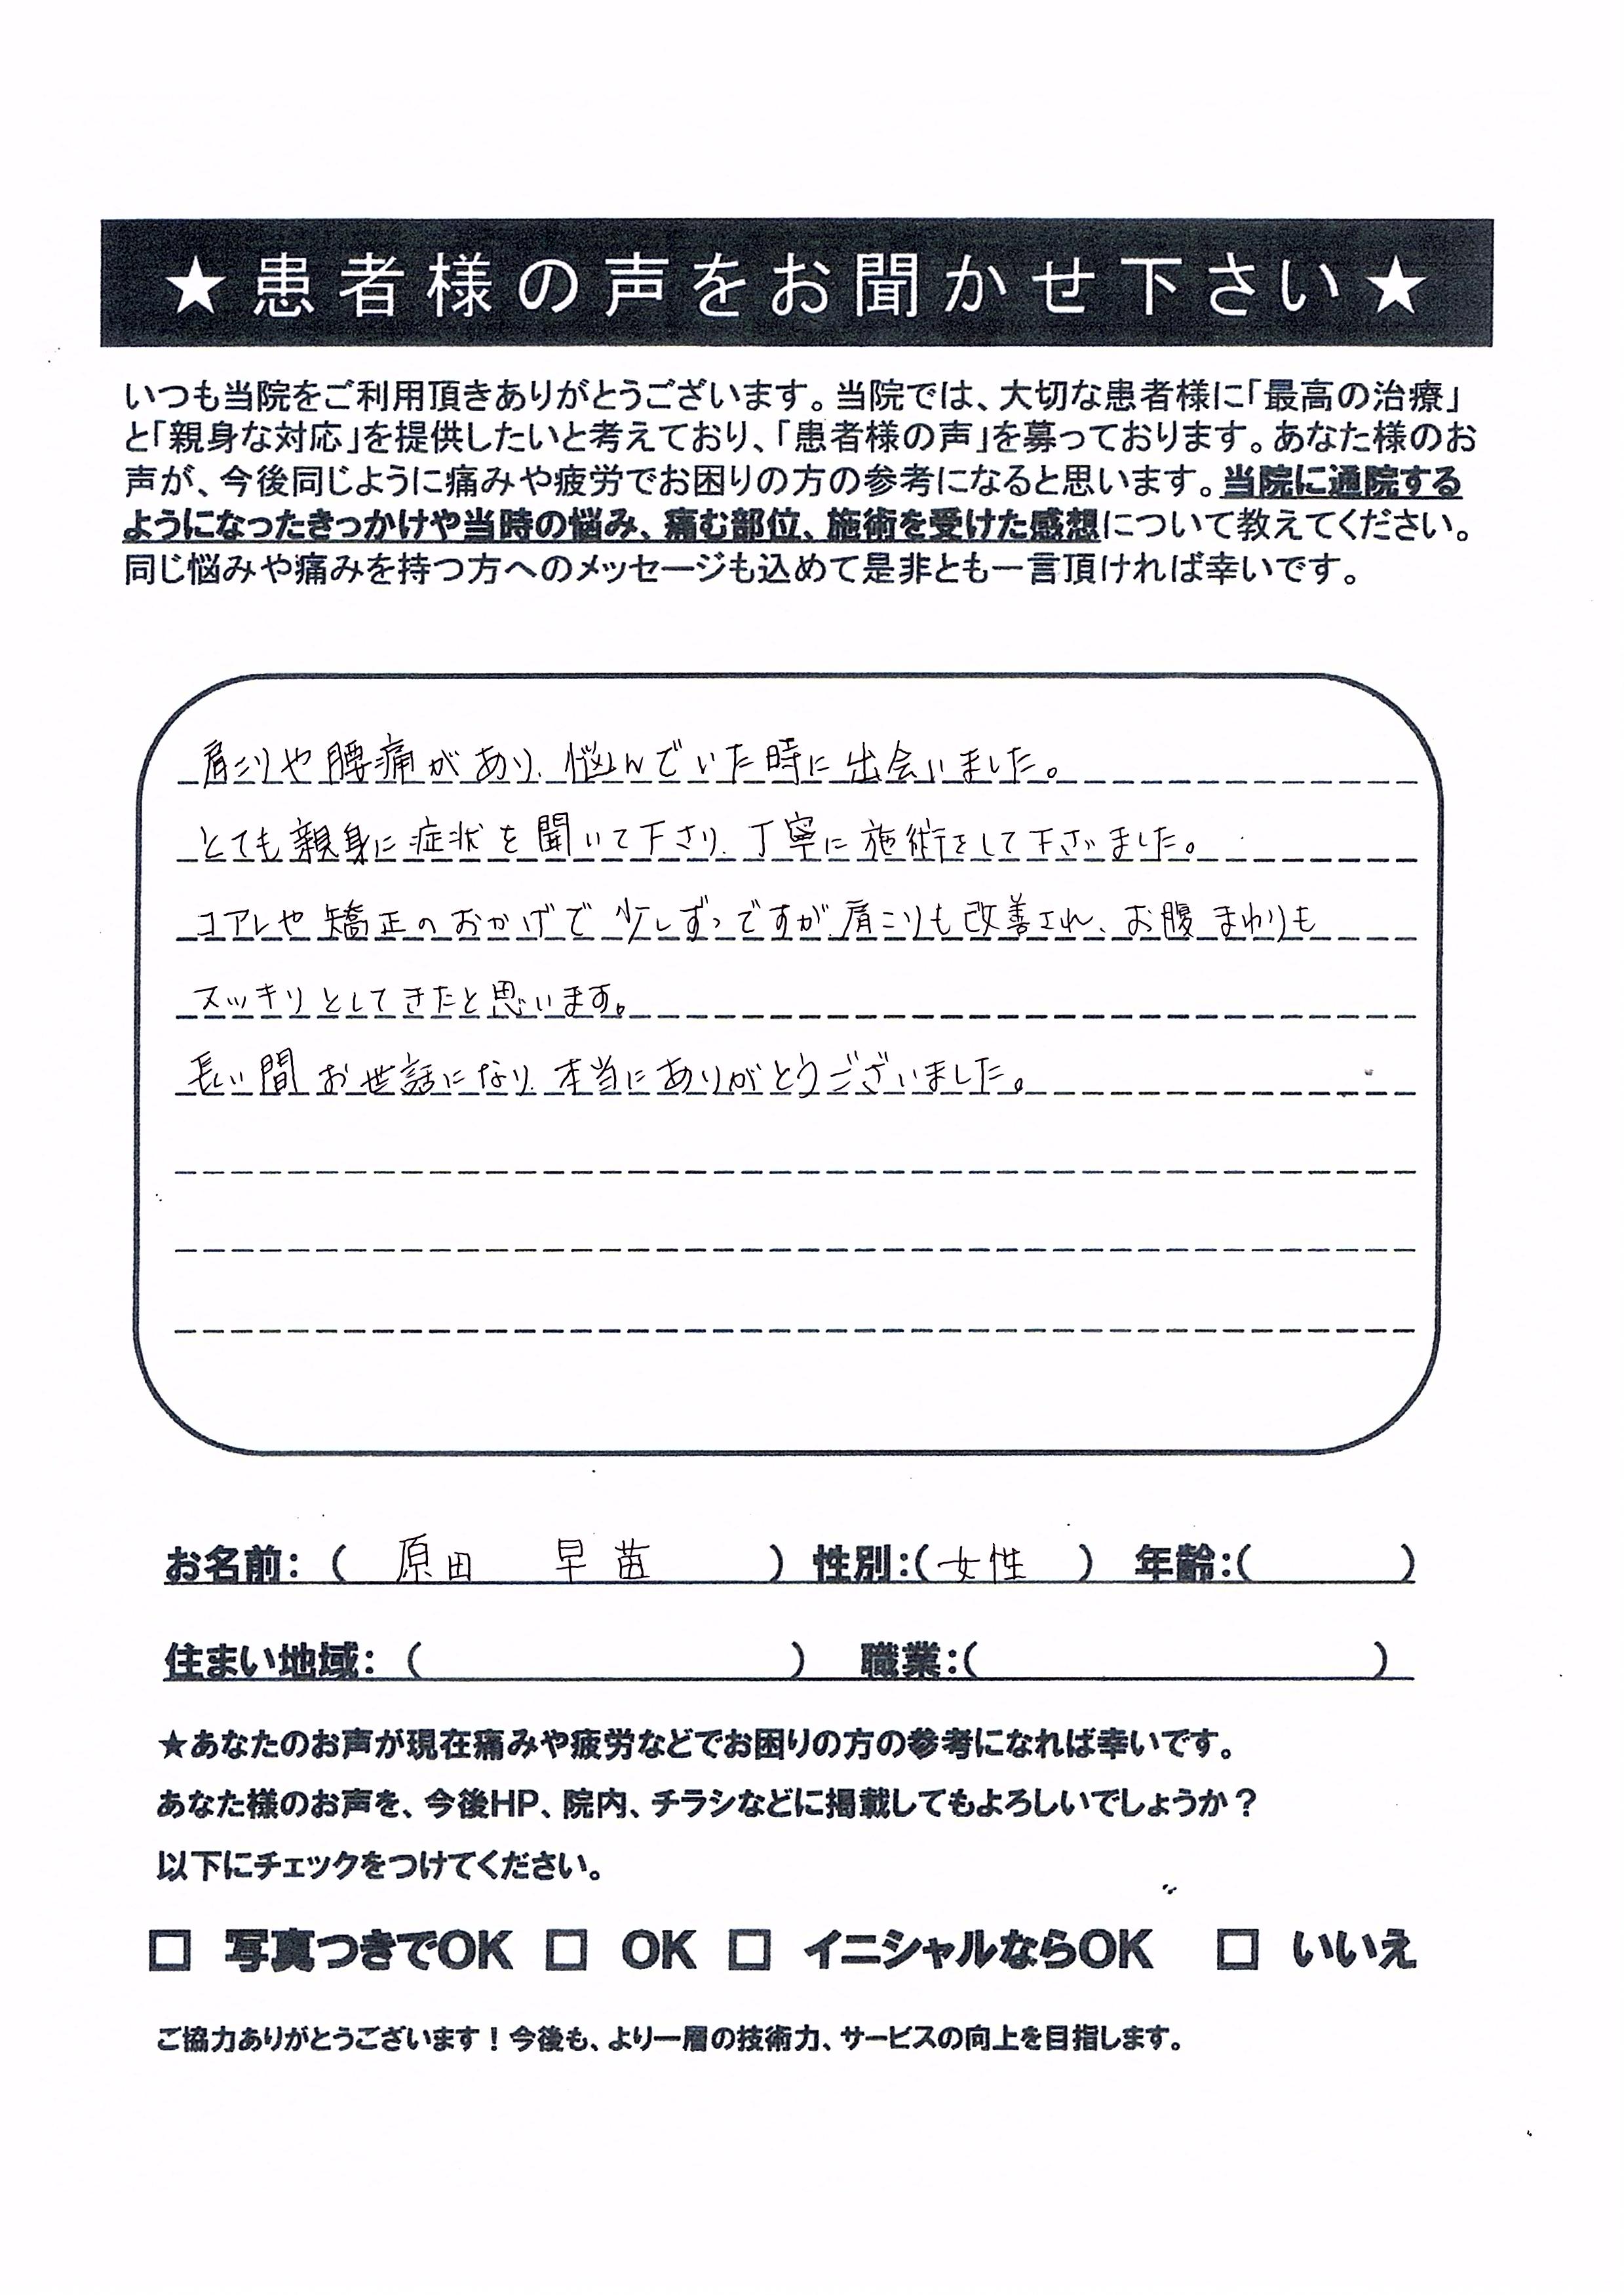 ★患者様の声をお聞かせ下さい★
いつも当院をご利用頂きありがとうございます。当院では、大切な患者様に「最高の治療」
と「親身な対応」を提供したいと考えており、「患者様の声」を募っております。あなた様のお
声が、今後同じように痛みや疲労でお困りの方の参考になると思います。当院に通院する
ようになったきっかけや当時の悩み、痛む部位、施術を受けた感想について教えてください。
同じ悩みや痛みを持つ方へのメッセージも込めて是非とも一言頂ければ幸いです。
肩こりや腰痛があり、悩んでいた時に出会いました。
とても親身に症状を聞いて下さり、丁寧に施術をして下さいました。
コアレや矯正のおかげで少しずつですが、肩こりも改善され、お腹まわりも
スッキリとしてきたと思います。
長い間お世話になり、本当にありがとうございました。
お名前：（ 原田 早苗 ） 性別：（ 女性 ） 年齢：（ ）
住まい地域：（ ） 職業：（ ）
★あなたのお声が現在痛みや疲労などでお困りの方の参考になれば幸いです。
あなた様のお声を、今後HP、院内、チラシなどに掲載してもよろしいでしょうか？
以下にチェックをつけてください。
□ 写真つきでOK □ OK □ イニシャルならOK □ いいえ
ご協力ありがとうございます！今後も、より一層の技術力、サービスの向上を目指します。